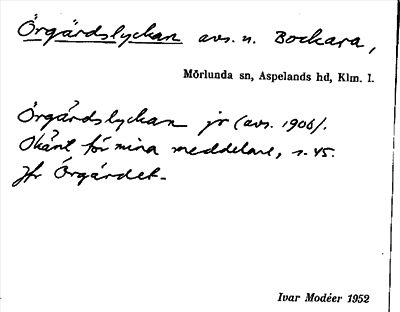 Örgärdslyckan avs. u. Bockara,
Mörlunda sn, Aspelands hd, Klm. l.
Örgårdslyckan jr (avs. 1906).
Okänt för mina meddelare, s. 45.
Jfr Örgärdet.
Ivar Modéer 1952